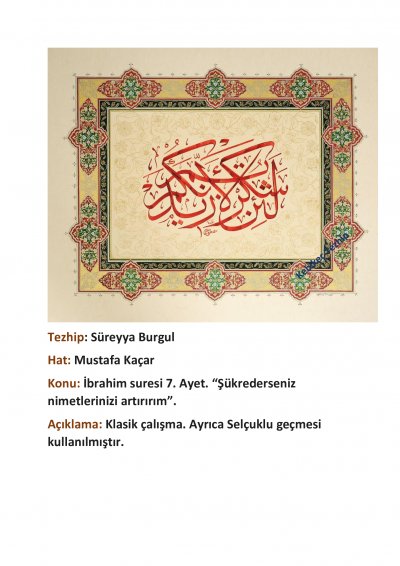 لئن شكرتم لأزيدنكم
Tezhip: Süreyya Burgul
Hat: Mustafa Kaçar
Konu: İbrahim suresi 7. Ayet. “Şükrederseniz
nimetlerinizi artırırım”.
Açıklama: Klasik çalışma. Ayrıca Selçuklu geçmesi
kullanılmıştır.